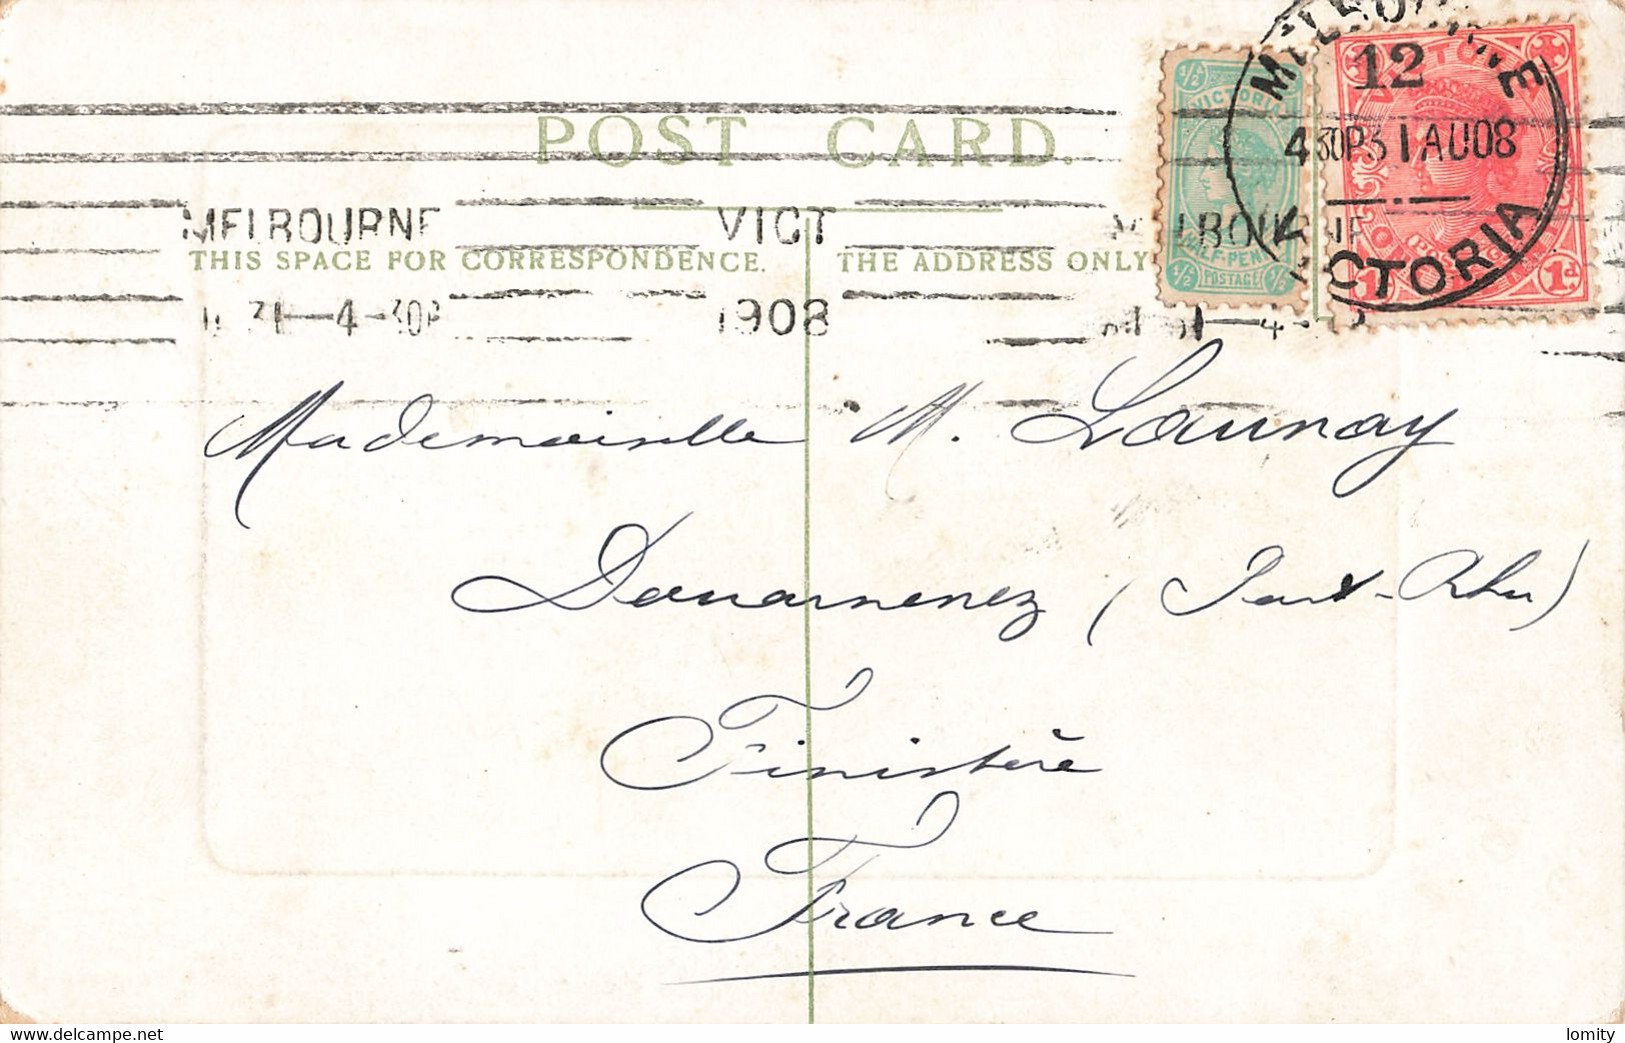 POST CARD.
MELBOURNE VICT MELBOURNE
THIS SPACE FOR CORRESPONDENCE. THE ADDRESS ONLY
31-4-30P 1908 31-4-
½ VICTORIA
HALF-PENNY
½ POSTAGE ½
VICTORIA
1d 1d
MELBOURNE
12
4 30P 31 AU 08
VICTORIA
Mademoiselle M. Launay
Douarnenez (Port-Rhu)
Finistère
France
https://www.delcampe.net
lomity